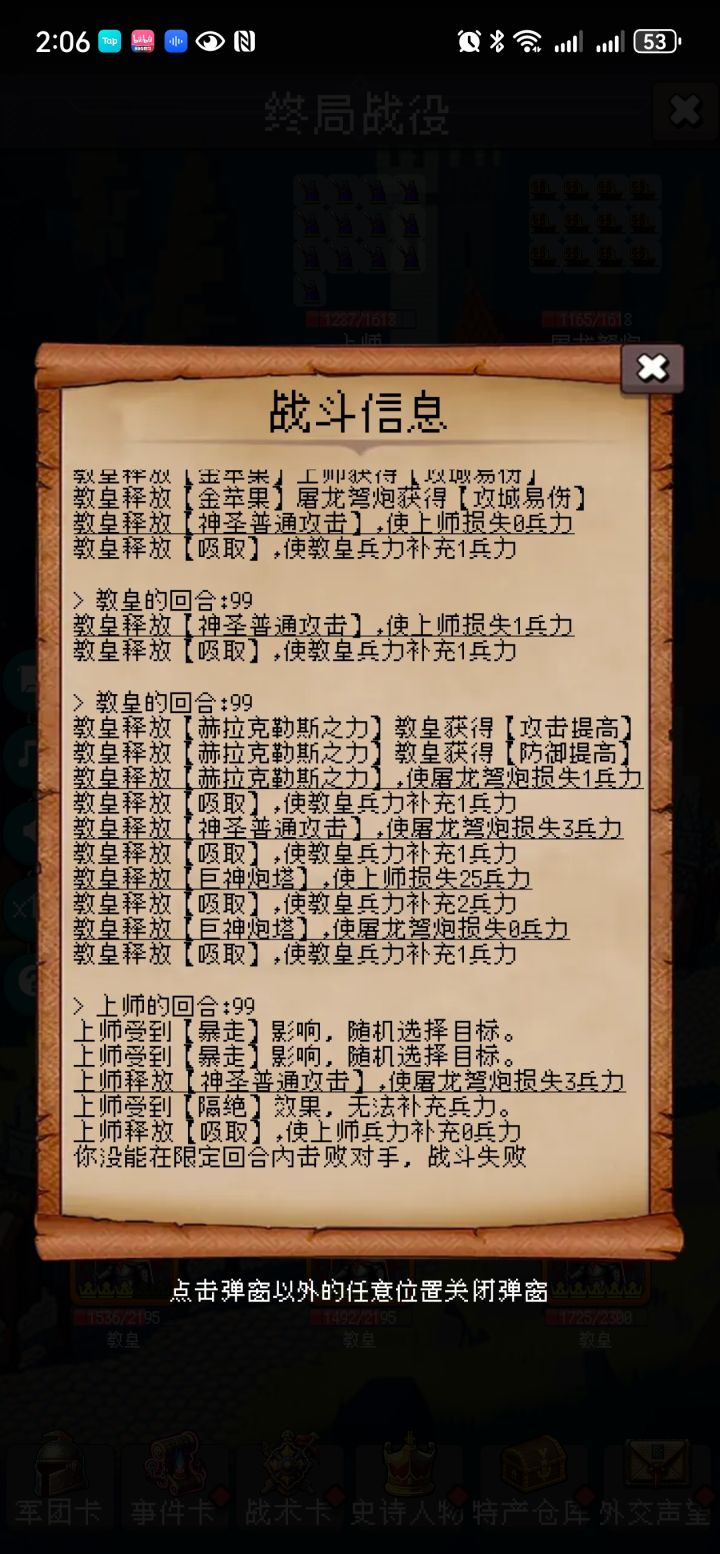 2:06
Tap
bilibili
53
终局战役
1287/1613
1165/1618
上师
屠龙弩炮
战斗信息
教皇释放【金苹果】上师获得【攻城易伤】
教皇释放【金苹果】屠龙弩炮获得【攻城易伤】
教皇释放【神圣普通攻击】,使上师损失0兵力
教皇释放【吸取】,使教皇兵力补充1兵力
> 教皇的回合:99
教皇释放【神圣普通攻击】,使上师损失1兵力
教皇释放【吸取】,使教皇兵力补充1兵力
> 教皇的回合:99
教皇释放【赫拉克勒斯之力】教皇获得【攻击提高】
教皇释放【赫拉克勒斯之力】教皇获得【防御提高】
教皇释放【赫拉克勒斯之力】,使屠龙弩炮损失1兵力
教皇释放【吸取】,使教皇兵力补充1兵力
教皇释放【神圣普通攻击】,使屠龙弩炮损失3兵力
教皇释放【吸取】,使教皇兵力补充1兵力
教皇释放【巨神炮塔】,使上师损失25兵力
教皇释放【吸取】,使教皇兵力补充2兵力
教皇释放【巨神炮塔】,使屠龙弩炮损失0兵力
教皇释放【吸取】,使教皇兵力补充1兵力
> 上师的回合:99
上师受到【暴走】影响，随机选择目标。
上师受到【暴走】影响，随机选择目标。
上师释放【神圣普通攻击】,使屠龙弩炮损失3兵力
上师受到【隔绝】效果，无法补充兵力。
上师释放【吸取】,使上师兵力补充0兵力
你没能在限定回合内击败对手，战斗失败
点击弹窗以外的任意位置关闭弹窗
1536/2195
1492/2195
1725/2300
教皇
教皇
教皇
军团卡
事件卡
战术卡
史诗人物
特产仓库
外交声望